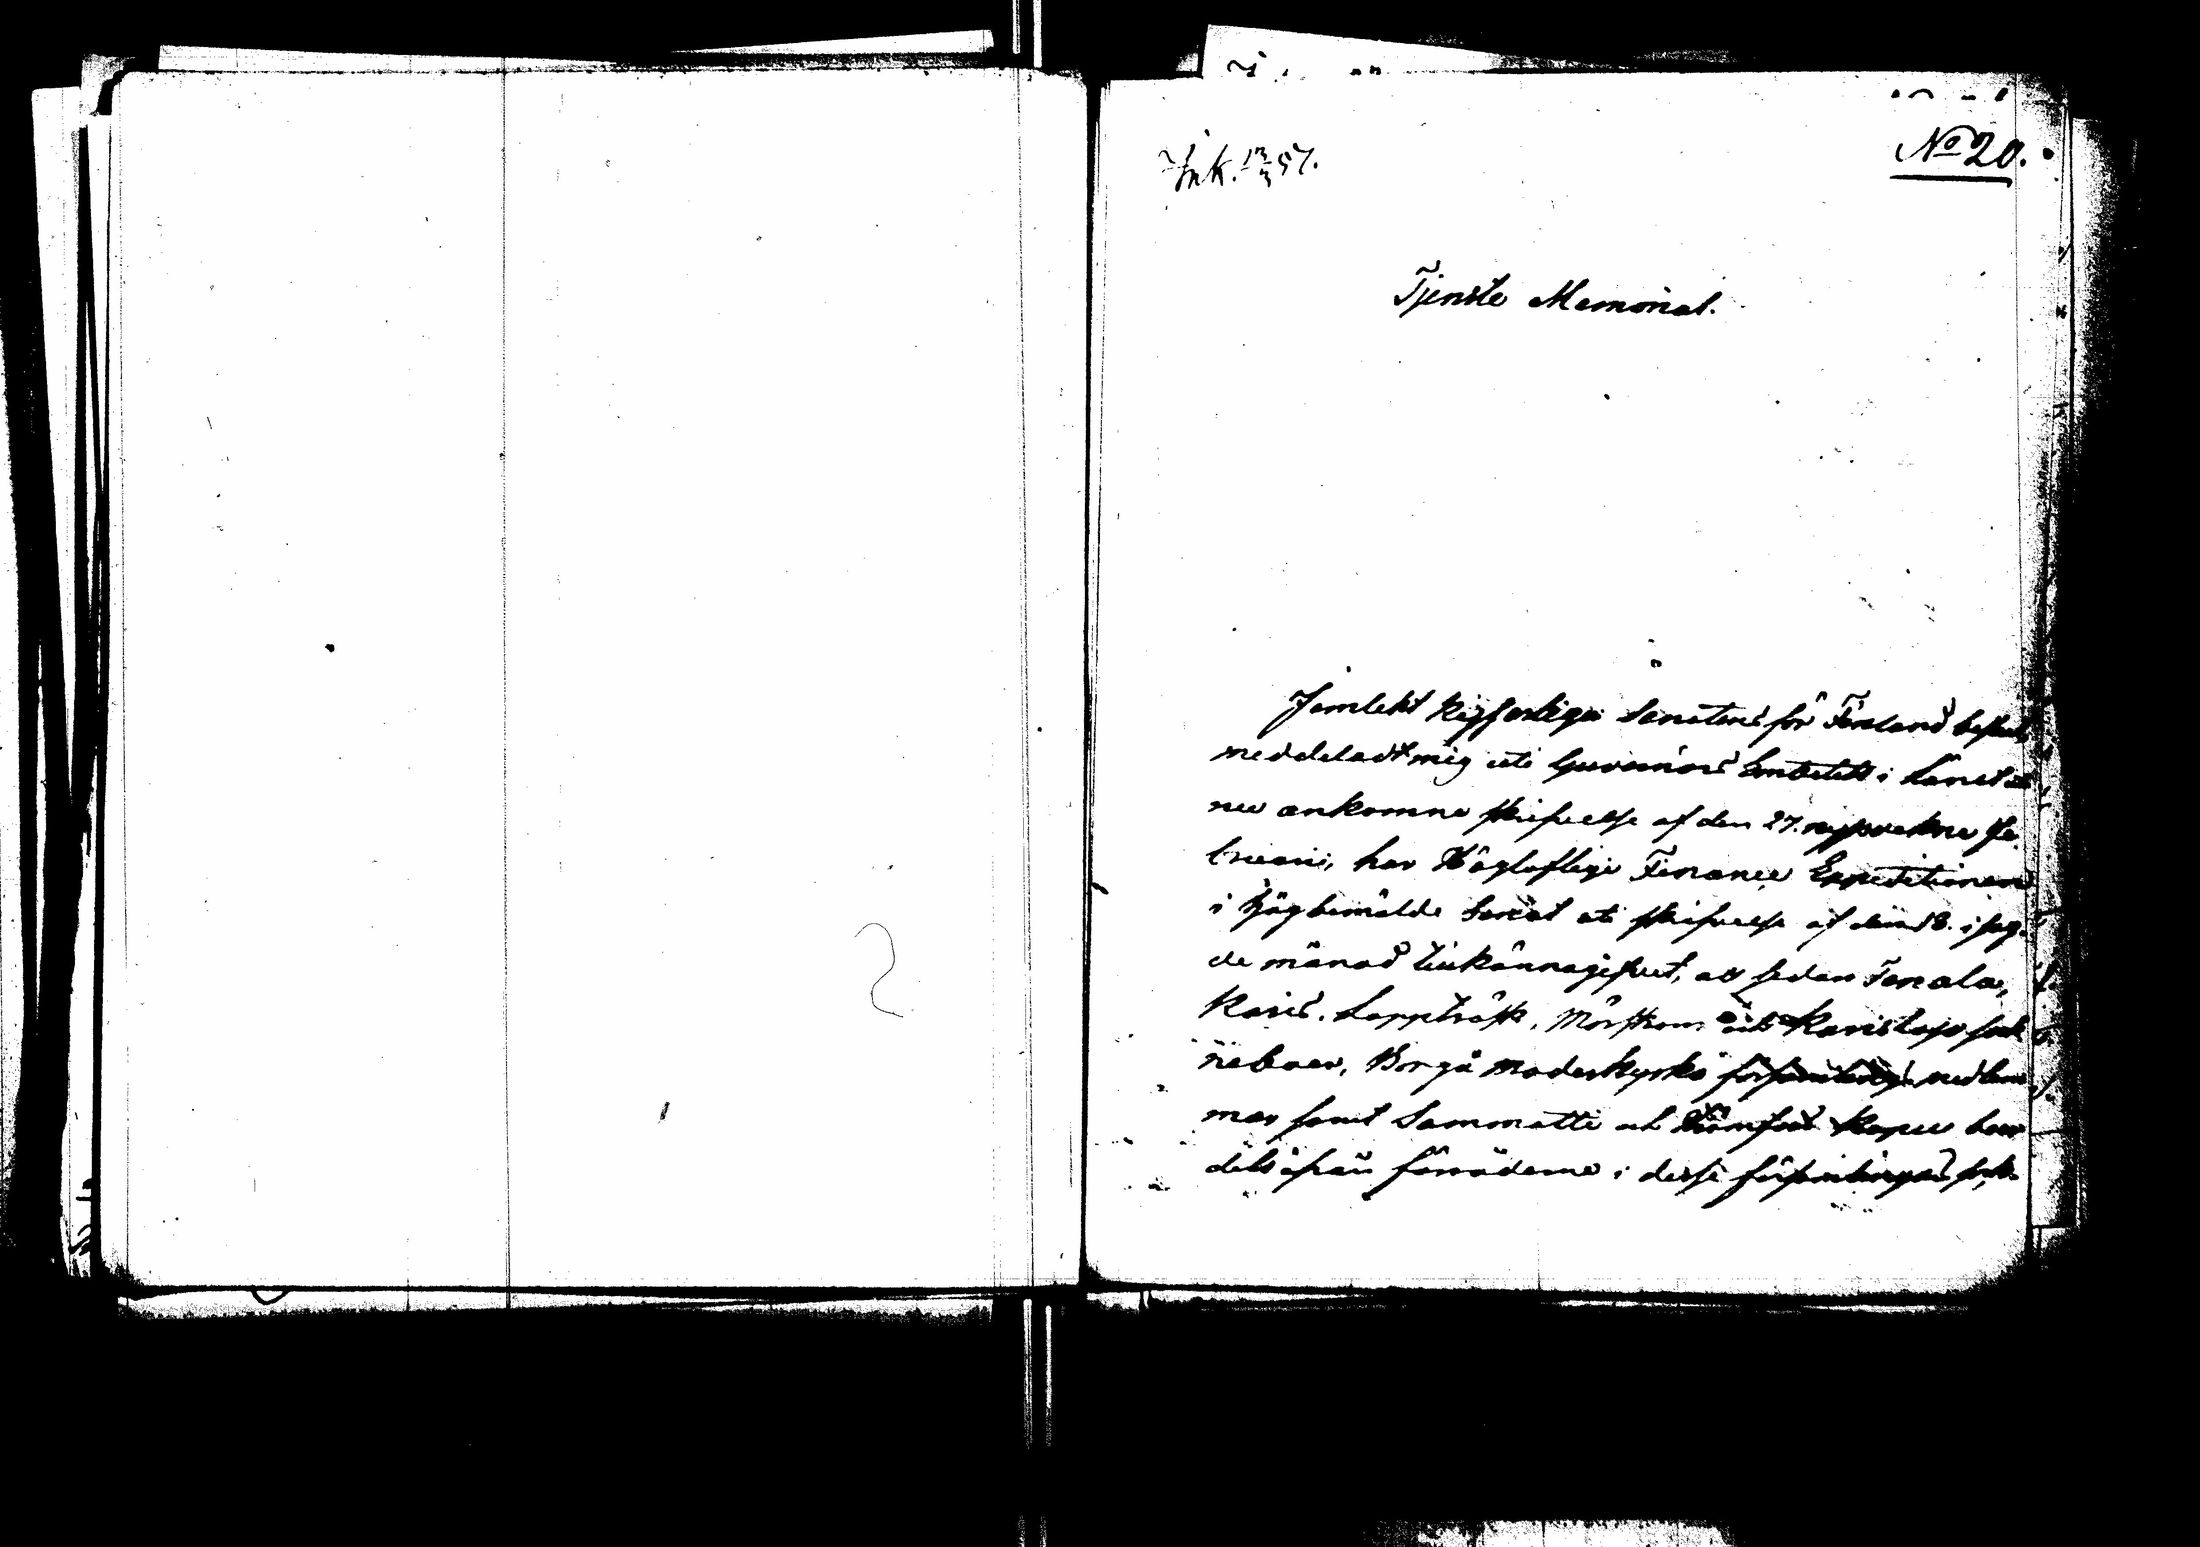 No 20.
Ink. 13/3 57.
Tjenste Memorial.
Jemlikt Kejserliga Senatens för Finland befall,
meddeladt mig uti Guvernörs Embetets i Länet
nu ankomna skrifvelse af den 27. Fe-
bruari, har Högloflige Finance Expeditionen
i Högbemälde Senat uti skrifvelse af den 18. i sag-
de månad tillkännagifvit, att sedan Tenala,
Karis, Lappträsk, Mörskom och Karislojo sock
neboer, Borgå Moderkyrko församlings medlem
mar samt Sammatti och Kapell boer
dels ifrån förråderne i desse församlingar,